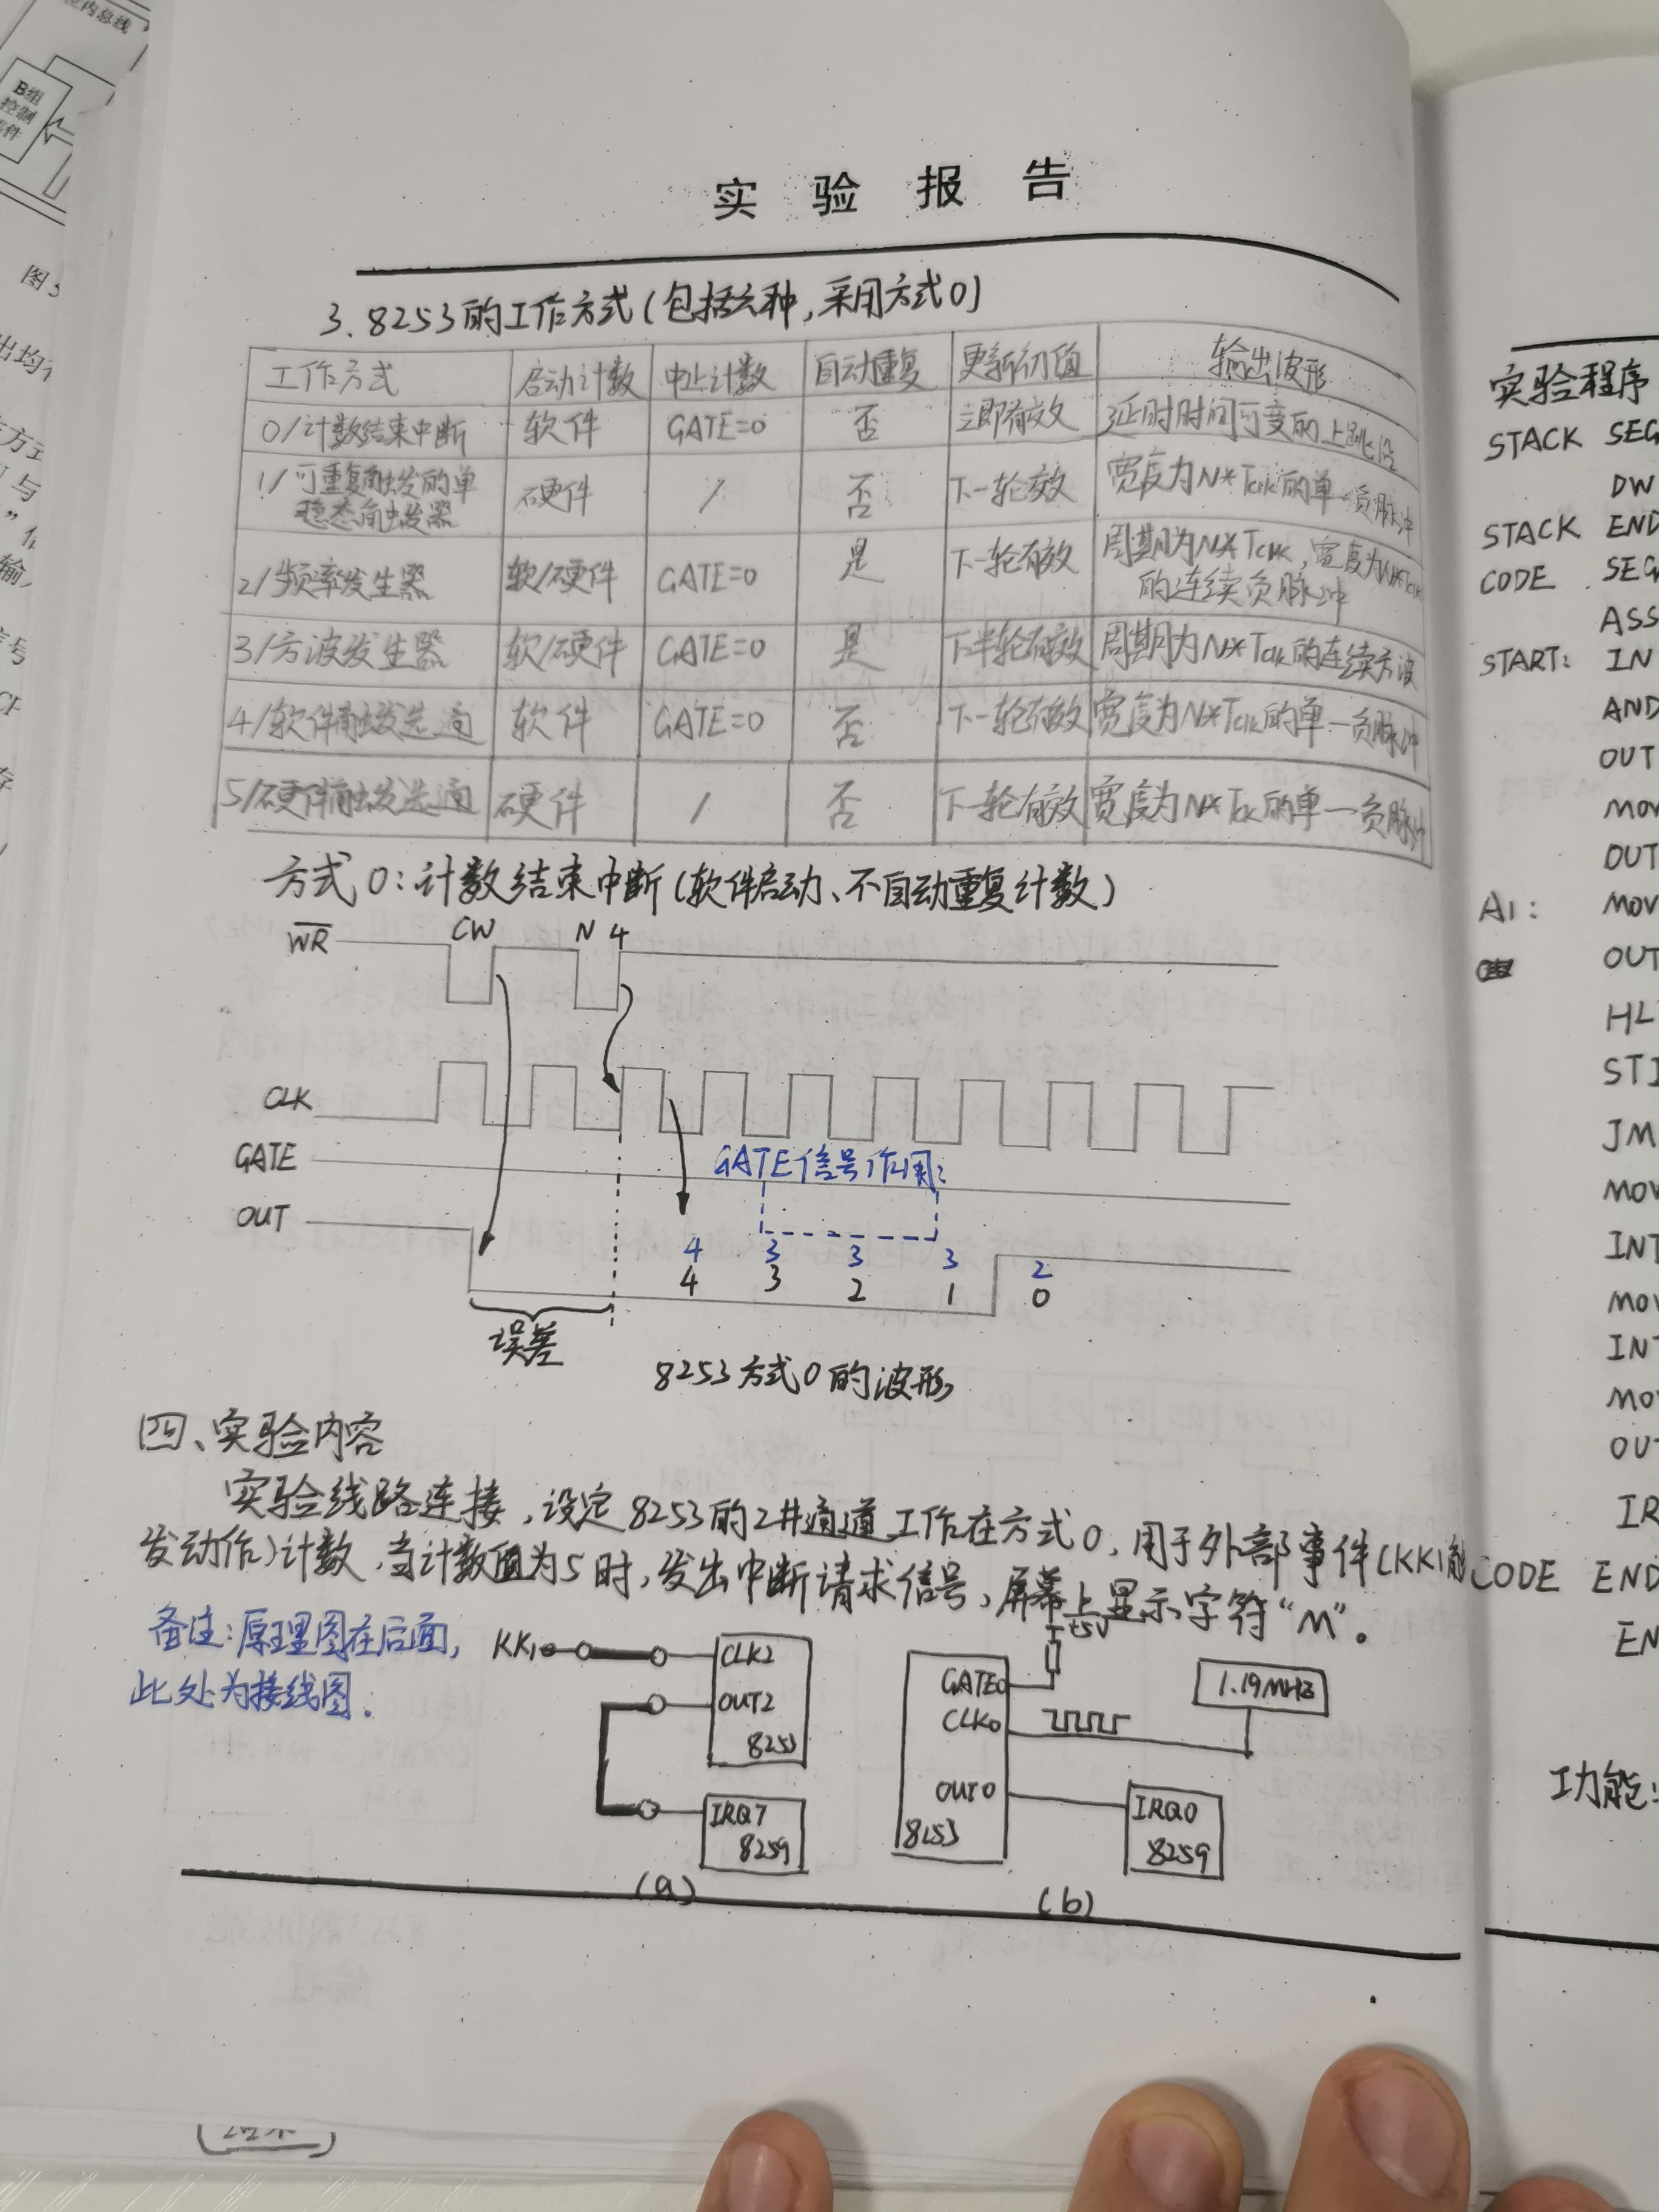 室内总线
B组
控制
实验报告
3. 8253的工作方式(包括六种,采用方式0)
工作方式 启动计数 中止计数 自动重复 更新初值 输出波形
0/计数结束中断 软件 GATE=0 否 立即有效 延时时间可变的上跳沿
1/可重复触发的单稳态触发器 硬件 / 否 下一轮有效 宽度为N*Tclk的单一负脉冲
2/频率发生器 软/硬件 GATE=0 是 下一轮有效 周期为N*Tclk,宽度为 的连续负脉冲
3/方波发生器 软/硬件 GATE=0 是 下半轮有效 周期为N*Tclk的连续方波
4/软件触发选通 软件 GATE=0 否 下一轮有效 宽度为N*Tclk的单一负脉冲
5/硬件触发选通 硬件 / 否 下一轮有效 宽度为N*Tclk的单一负脉冲
方式0:计数结束中断(软件启动、不自动重复计数)
WR CW N 4
CLK
GATE GATE信号作用:
OUT
4 3 3 3 2
4 3 2 1 0
误差
8253方式0的波形
四、实验内容
实验线路连接,设定8253的2#通道工作在方式0,用于外部事件(KK1触
发动作)计数,当计数值为5时,发出中断请求信号,屏幕上显示字符“M”。
备注:原理图在后面,
此处为接线图.
KK1 CLK2
OUT2
8253
IRQ7
8259
(a)
+5V
GATE0
CLK0
1.19MHz
OUT0
8253
IRQ0
8259
(b)
实验程序
STACK SEG
DW
STACK END
CODE SEG
ASS
START: IN
AND
OUT
MOV
OUT
A1: MOV
OUT
HL
STI
JM
MOV
INT
MOV
INT
MO
OU
IR
CODE END
EN
功能: